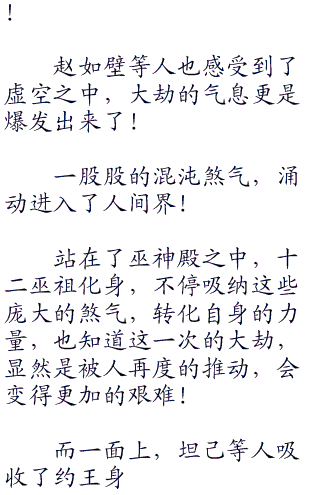 ！
赵如壁等人也感受到了
虚空之中，大劫的气息更是
爆发出来了！
一股股的混沌煞气，涌
动进入了人间界！
站在了巫神殿之中，十
二巫祖化身，不停吸纳这些
庞大的煞气，转化自身的力
量，也知道这一次的大劫，
显然是被人再度的推动，会
变得更加的艰难！
而一面上，坦己等人吸
收了约王身